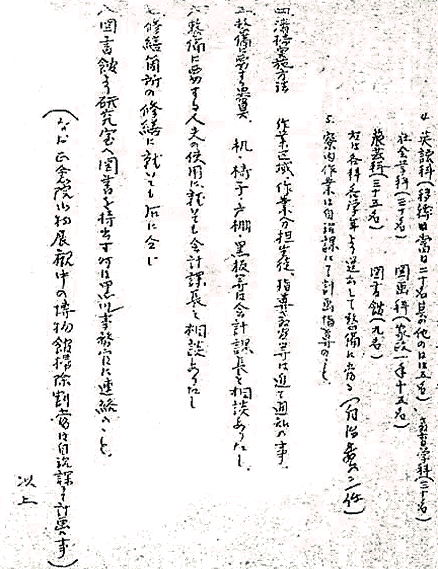 4. 英語科(移転当日二十名其の他の日は五名) 教育学科(三十名)
社会学科(三十名) 図画科(家政一年十五名)
農芸科(三十五名) 図書館(九名)
右は各科各学年より選出して整備に当る(自治委員二一任)
5. 寮内作業は自治課にて計画指導のこと
四、清掃実施方法 作業区域、作業分担、生徒、指導教官等は追て通知の事、
五、整備に要する器具、机・椅子・戸棚・黒板等は会計課長と相談ありたし、
六、整備に要する人夫の使用に就ても会計課長と相談ありたし
七、修繕箇所の修繕に就いても右に仝じ
八、図書館より研究室へ図書を持出す時は黒川事務官に連絡のこと、
(なお正倉院御物展観中の博物館掃除割当は自治課にて計画の事)
以上